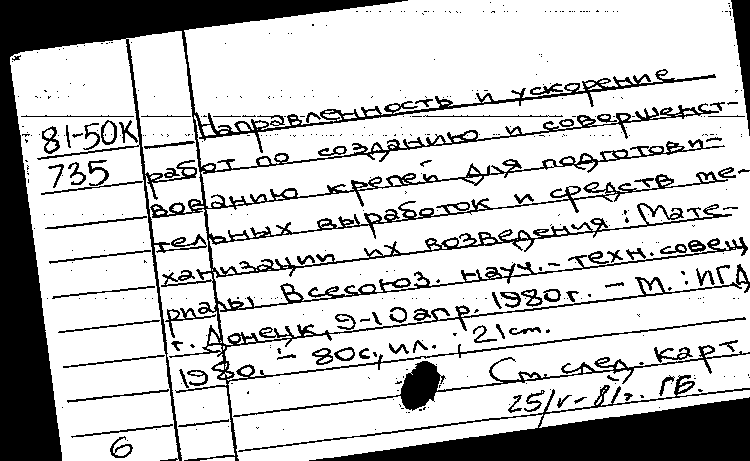 81-50К
735
Направленность и ускорение
работ по созданию и совершенст-
вованию крепей для подготови-
тельных выработок и средств ме-
ханизации их возведения : Мате-
риалы Всесоюз. науч.-техн. совещ
г. Донецк, 9-10 апр. 1980г. – М. : ИГД
1980. – 80с., ил. ; 21 cm.
См. след. карт.
25/V-81г. ГБ.
6